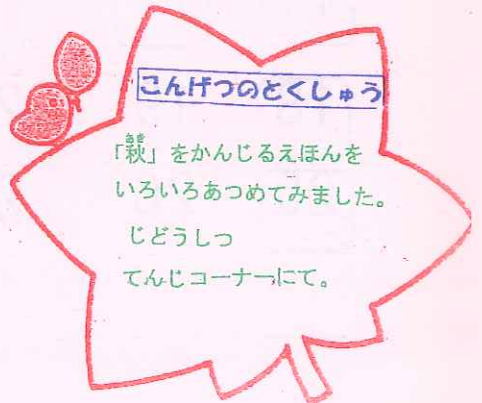 こんげつのとくしゅう
「秋」をかんじるえほんを
いろいろあつめてみました。
じどうしつ
てんじコーナーにて。